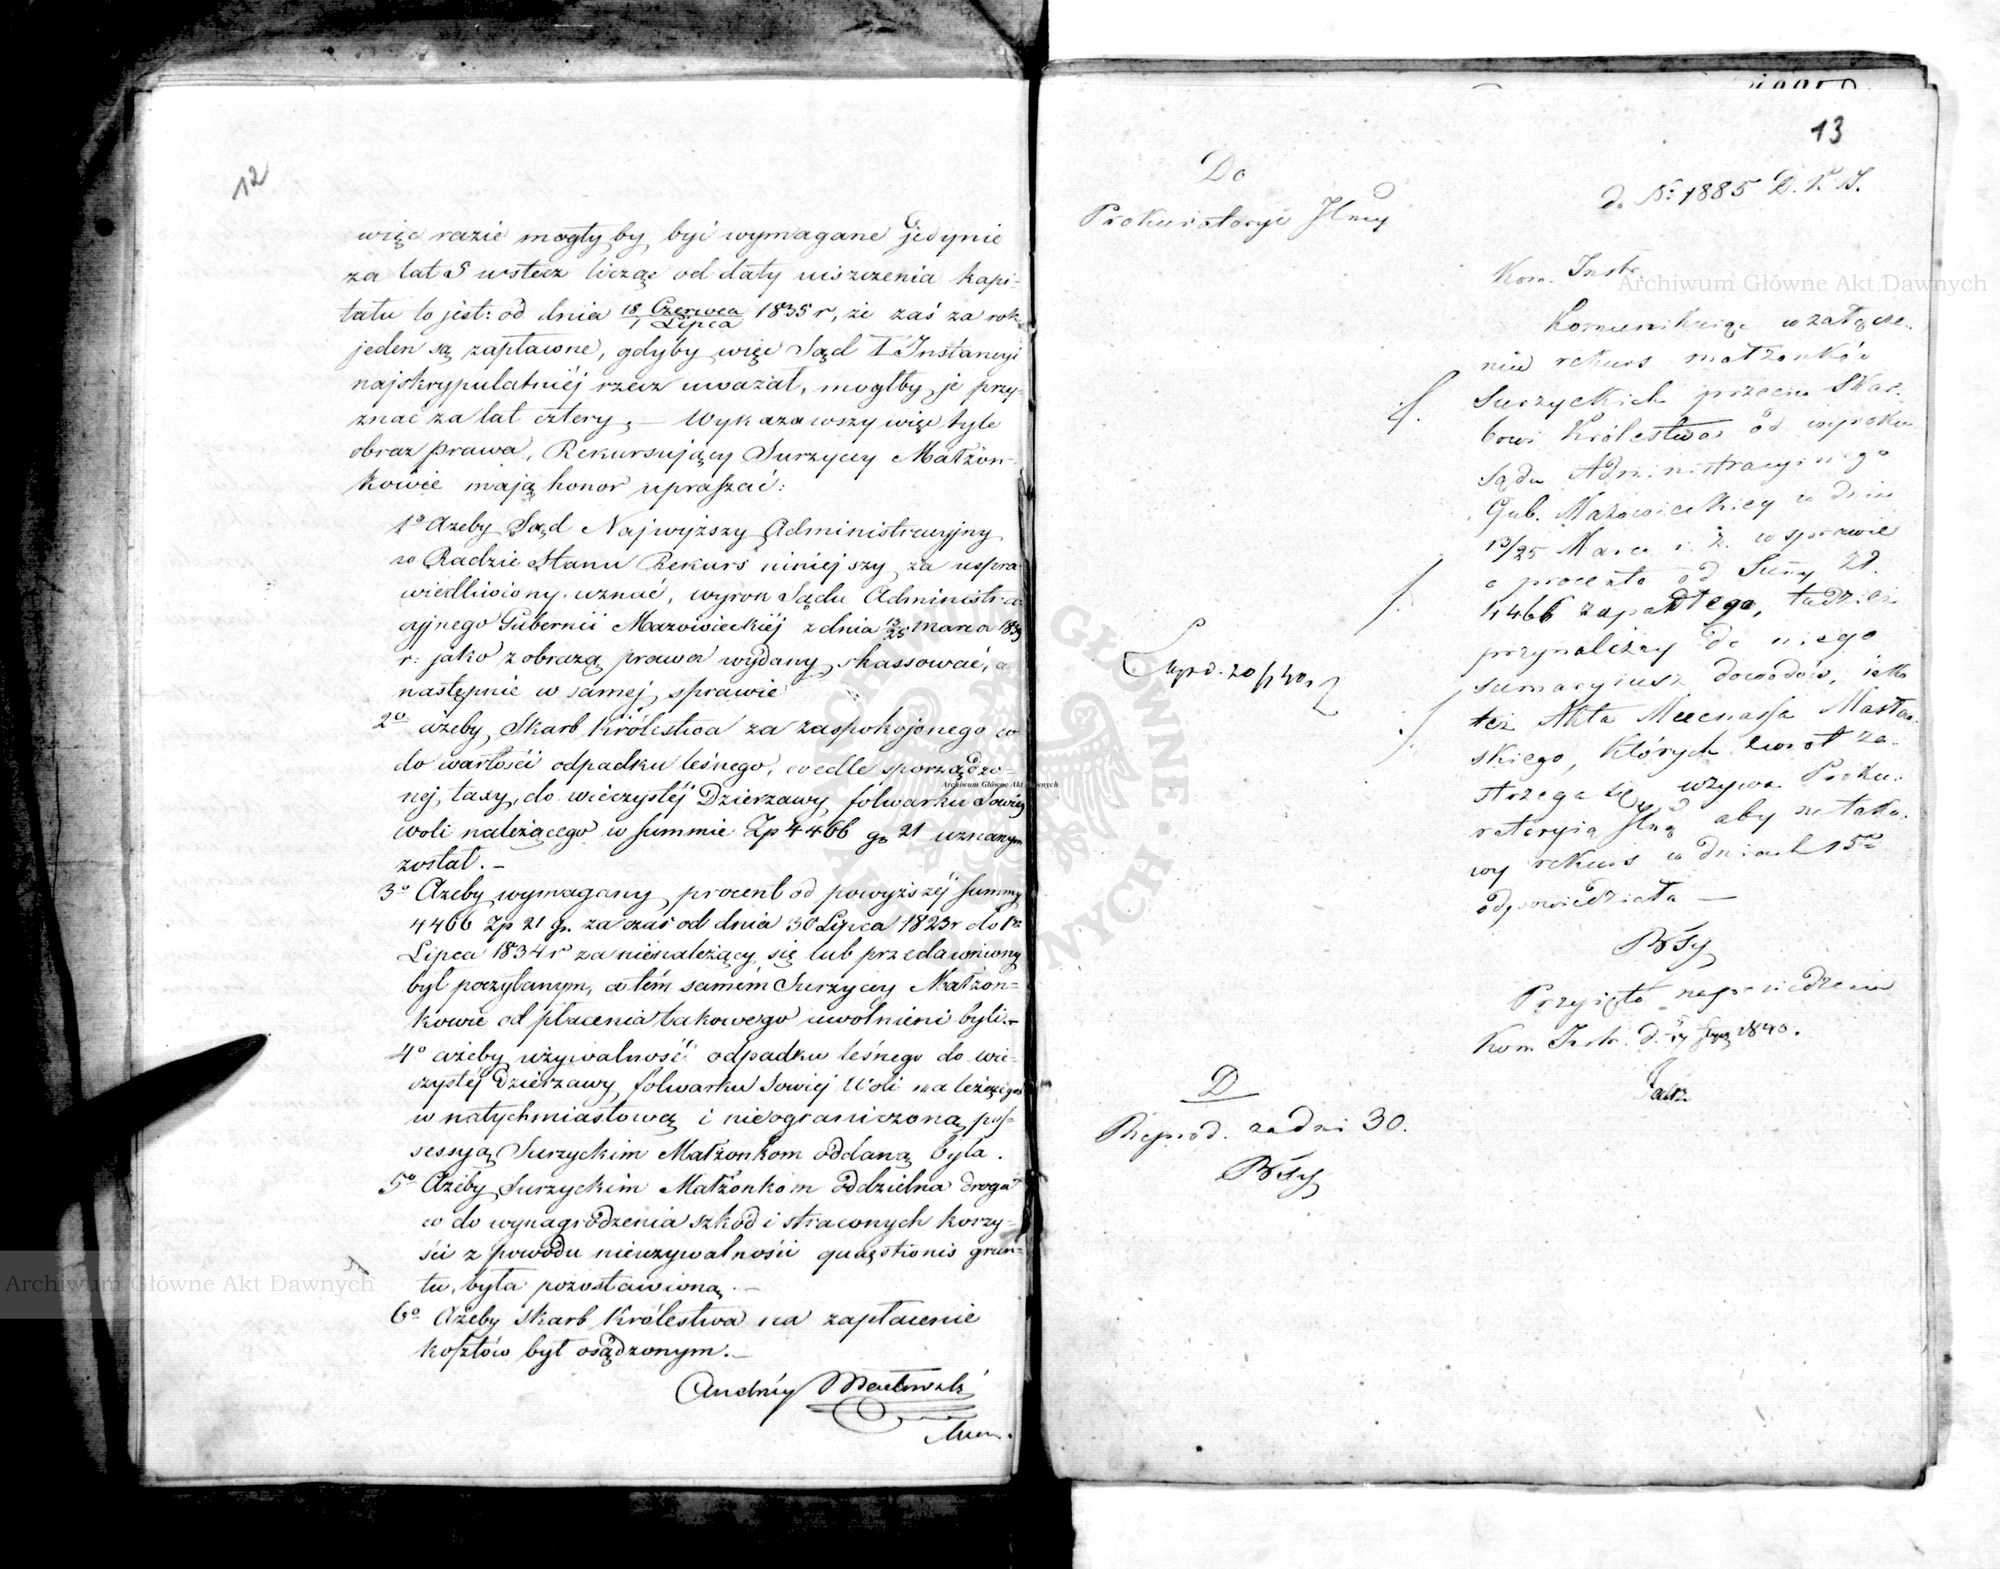 12
więc razie mogły by być wymagane jedynie
za lat 5 wstecz licząc od daty uiszczenia kapi-
tału to jest: od dnia 18 Czerwca / 1 Lipca 1835 r, że zaś za rok
jeden są zapławne, gdyby więc Sąd I Instancyi
najskrypulatniéj rzecz uważał, mogłby je przy-
znać za lat cztery, — Wykazawszy więc tyle
obraz prawa, Rekursujący Surzyccy Małżon-
kowie mają honor upraszać:
1º Ażeby Sąd Najwyższy Administracyjny
w Radzie Stanu Rekurs niniejszy za uspra
wiedliwiony uznać, wyrok Sądu Administra
cyjnego Gubernii Mazowieckiéj z dnia 13/25 Marca 1839
r: jako z obrazą prawa wydany skassować, a
następnie w samej sprawie
2º ażeby Skarb Królestwa za zaspokojonego co
do wartości odpadku leśnego, wedle sporządzo-
nej taxy, do wieczystéj Dzierzawy folwarku Sowiej
woli należącego w summie Zp 4466 gr 21 uznanym
został. —
3º Ażeby wymagany procent od powyższéj summy
4466 Zp 21 gr. za czas od dnia 30 Lipca 1823 r do 1go
Lipca 1834 r za nienależący się lub przedawniony
był poczytanym, a tém samém Surzyccy Małżon-
kowie od płacenia takowego uwolnieni byli. —
4º ażeby używalność odpadku leśnego do wie-
czystéj Dzierzawy folwarku Sowiej Woli należącego
w natychmiastową i nieograniczoną pos-
sessyą Surzyckim Małżonkom oddaną była.
5º Ażeby Surzyckim Małżonkom oddzielna droga
co do wynagrodzenia szkód i straconych korzy-
ści z powodu nieużywalności quaestionis grun-
tu, była pozostawioną. —
6º Ażeby Skarb Królestwa na zapłacenie
kosztów był osądzonym. —
Andrzéj
13
Do
Prokuratoryi Jlney
d. Nº 1885
Kom. Instr.
Kommunikując w załącze-
niu rekurs małżonków
Surzyckich przeciw Skar-
bowi Królestwa od wyroku
Sądu Administracyjnego
Gub. Mazowieckiey w dniu
13/25 Marca r. z. w sprawie
o procenta od Summy zł.
4466 zapadłego, tudzież
przynależny do niego
sumaryusz dowodów, jako
też Akta Mecenassa Masłow-
skiego, których zwrot za-
strzega się, wzywa Proku-
ratoryią Jlną aby na tako-
wy rekurs w dniach 15tu
odpowiedziała —
Przyięto na posiedzeniu
Kom. Instr. d. 1840.
Exped. 20/1 40
D
Reprod. za dni 30.
Archiwum Główne Akt Dawnych
Archiwum Główne Akt Dawnych
Archiwum Główne Akt Dawnych